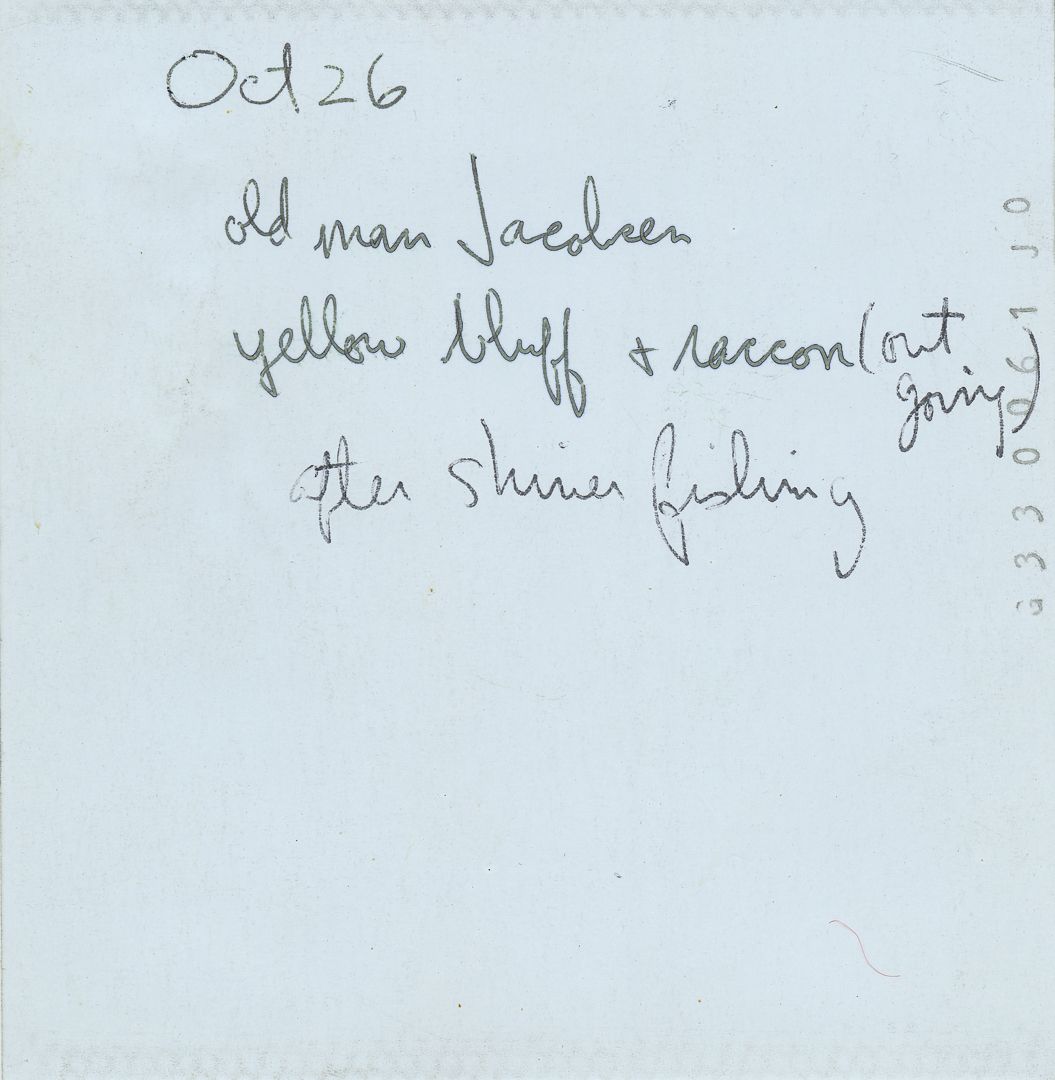 Oct 26
old man Jacobsen
yellow bluff + raccon (out
going)
after shiner fishing